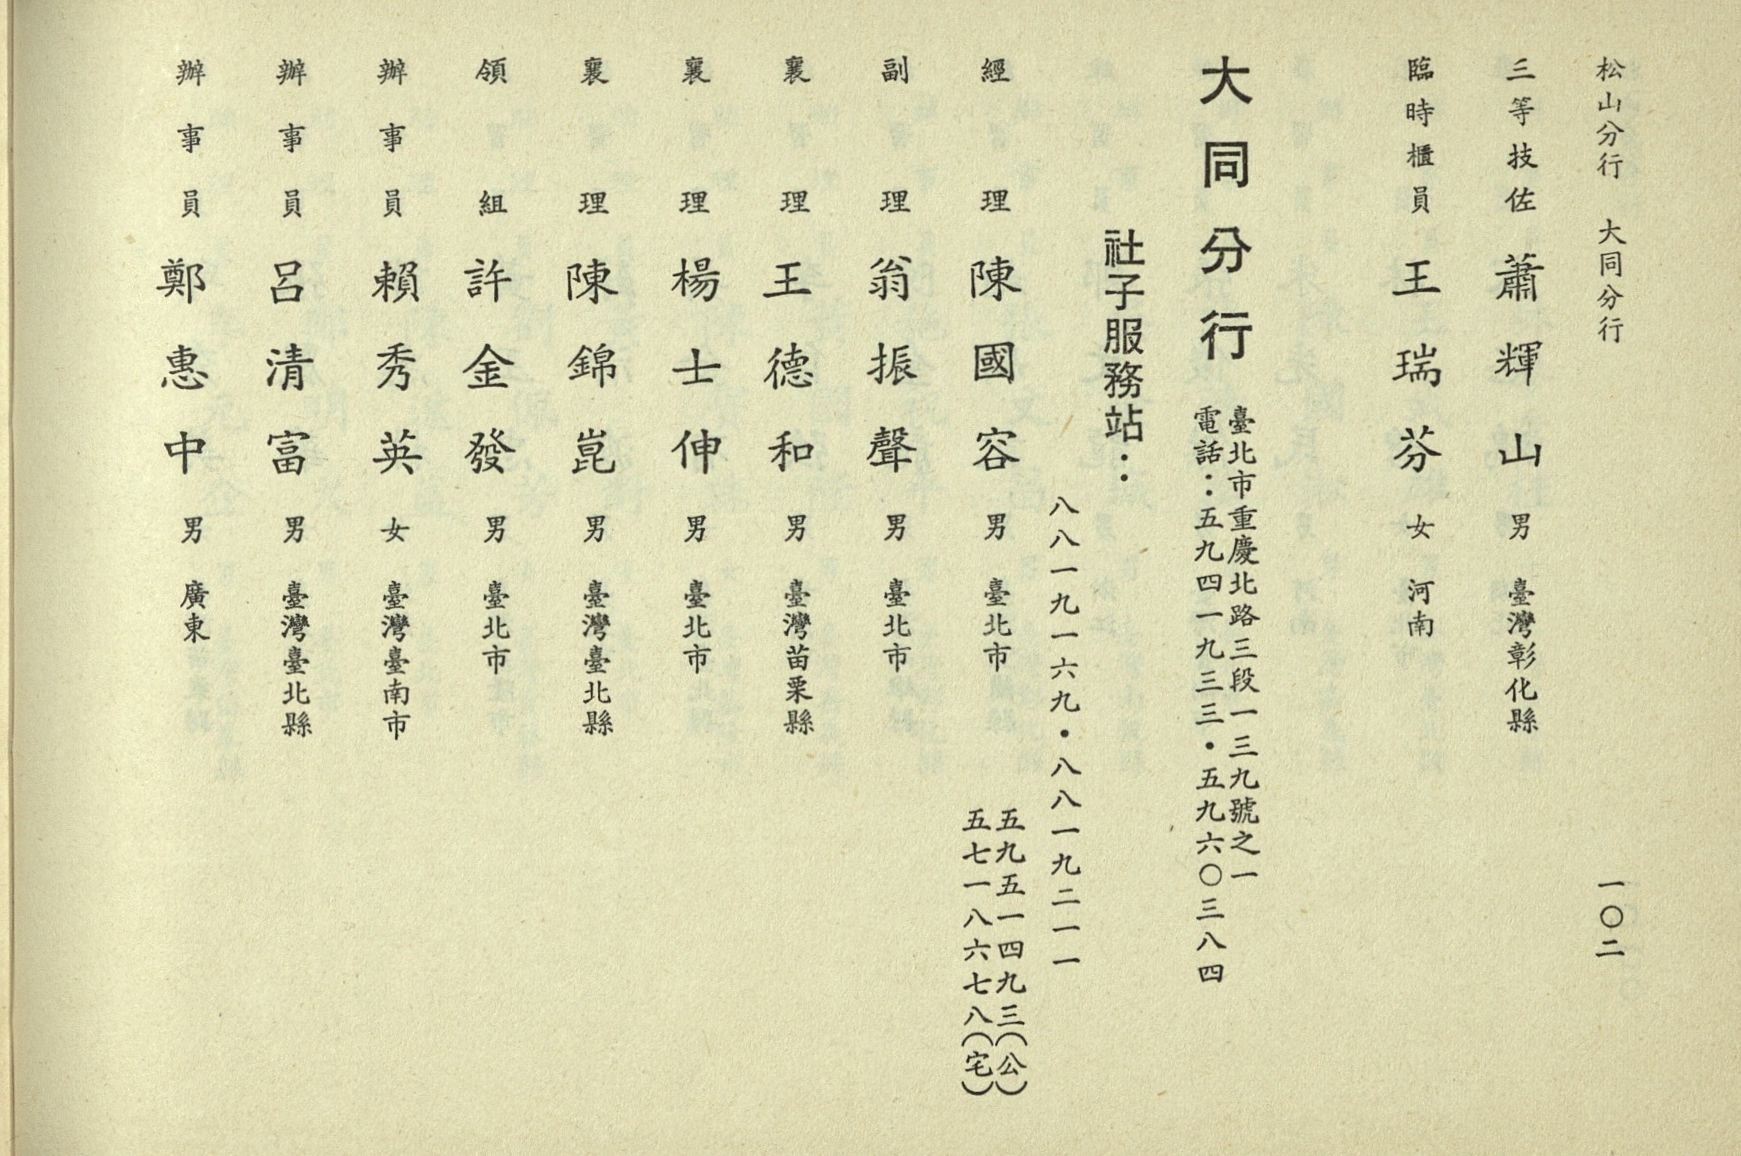 松山分行　大同分行　一〇二
三等技佐　蕭輝山　男　臺灣彰化縣
臨時櫃員　王瑞芬　女　河南
大同分行
臺北市重慶北路三段一三九號之一
電話：五九四一九三三・五九六〇三八四
社子服務站：
八八一九一六九・八八一九二一一
經理　陳國容　男　臺北市　五九五一四九三（公）
五七一八六七八（宅）
副理　翁振聲　男　臺北市
襄理　王德和　男　臺灣苗栗縣
襄理　楊士伸　男　臺北市
襄理　陳錦崑　男　臺灣臺北縣
領組　許金發　男　臺北市
辦事員　賴秀英　女　臺灣臺南市
辦事員　呂清富　男　臺灣臺北縣
辦事員　鄭惠中　男　廣東